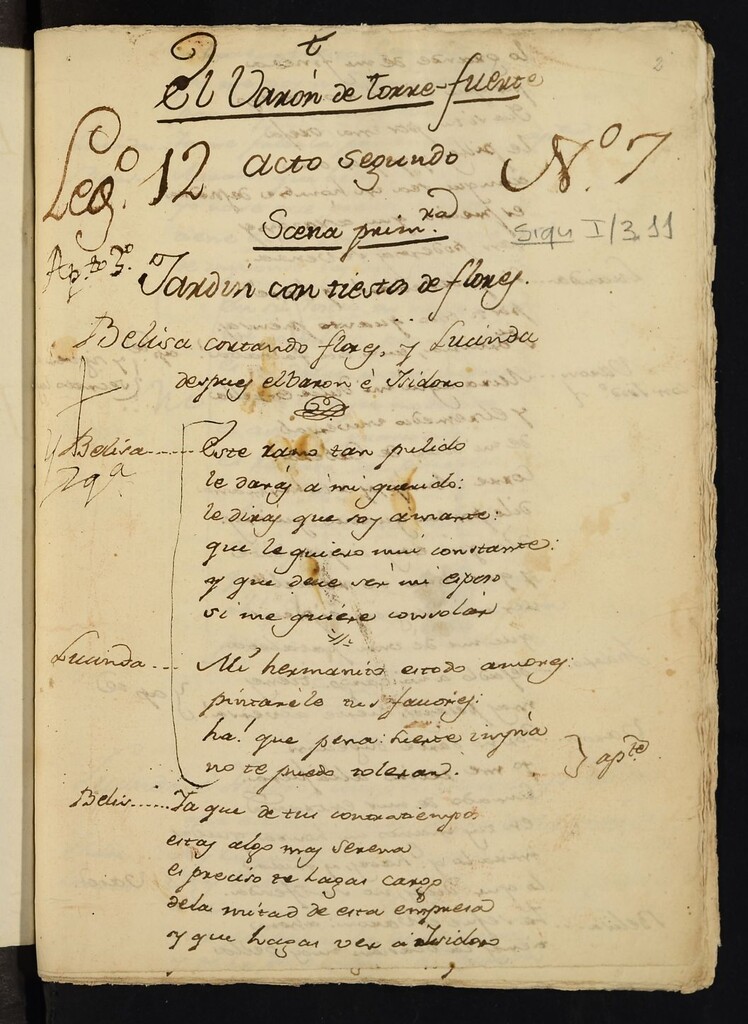 t
2
El Varón de torre-fuerte
Leg.º 12 acto segundo N.º 7
Scena prim.ra
Sign I/3 11
Ap.to 3.º Jardin con tiestos de flores.
Belisa cortando flores, y Lucinda
despues el baron è Isidoro
Belisa ..... Este ramo tan pulido
le darás á mi querido:
le dirás que soy amante:
que le quiero mui constante:
y que deve sér mi esposo
si me quiére consolár
Lucinda... Mi hermanito es todo amores:
pintaréle tus favóres:
ha! que pena: suerte impía
no te puedo tolerar. } ap.te
Belis...... Ya que de tus contratiempos
estas algo mas serena
es preciso te hagas cargo
dela mitad de esta empresa
y que hagas ver á Isidoro